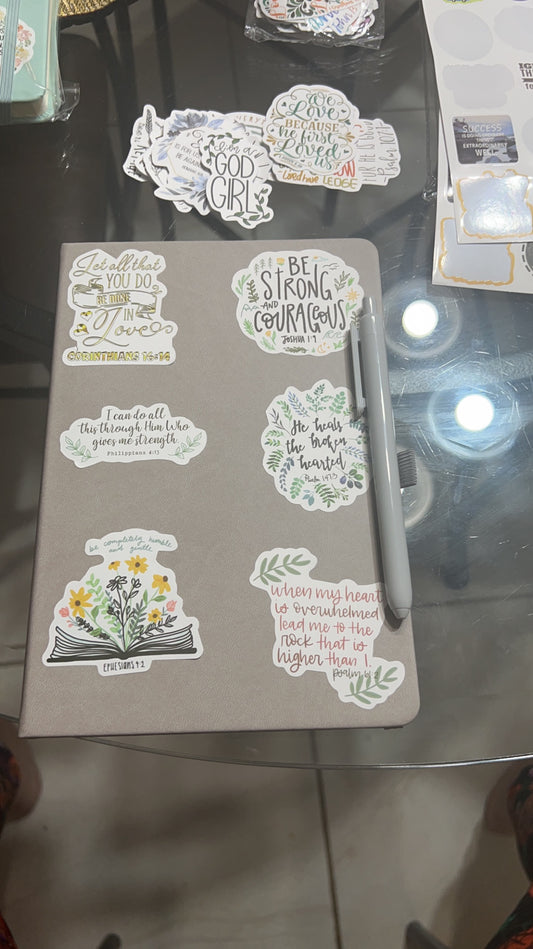 We
Love
BECAUSE
he first
Loved
us
I'm a
GOD
GIRL
SUCCESS
IS DOING ORDINARY
EXTRAORDINARY
WELL
Let all that
YOU DO
BE DONE
IN
Love
CORINTHIANS 16:14
BE
STRONG
AND
COURAGEOUS
JOSHUA 1:9
I can do all
this through Him Who
gives me strength.
Philippians 4:13
He heals
the broken
hearted
Psalm 147:3
be completely humble
and gentle
EPHESIANS 4:2
when my heart
is overwhelmed
lead me to the
rock that is
higher than I.
psalm 61:2